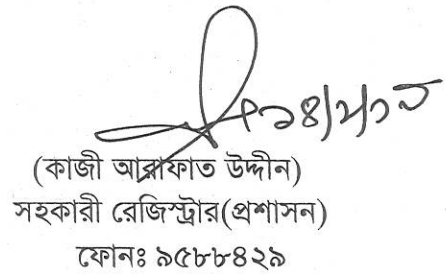 ১৪/২/১৯
(কাজী আরাফাত উদ্দীন)
সহকারী রেজিস্ট্রার(প্রশাসন)
ফোনঃ ৯৫৮৮৪২৯